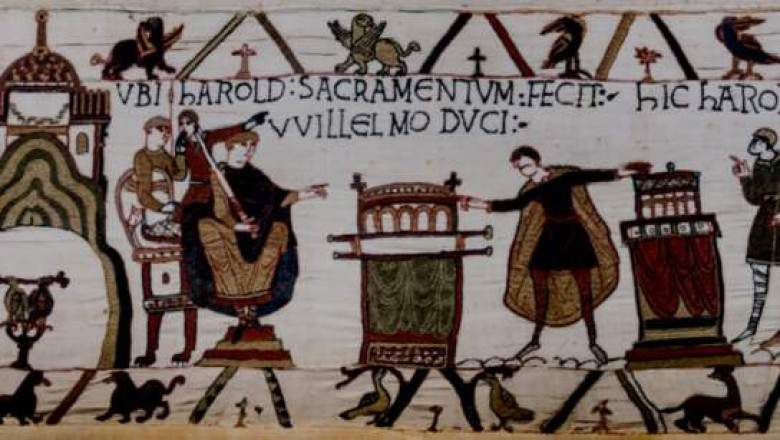 VBI hAROLD : SACRAMENTVM : FECIT :- hIC hARO
VVILLELMO DVCI :-